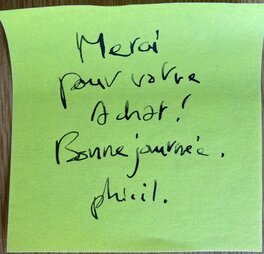 Merci
pour votre
Achat!
Bonne journée.